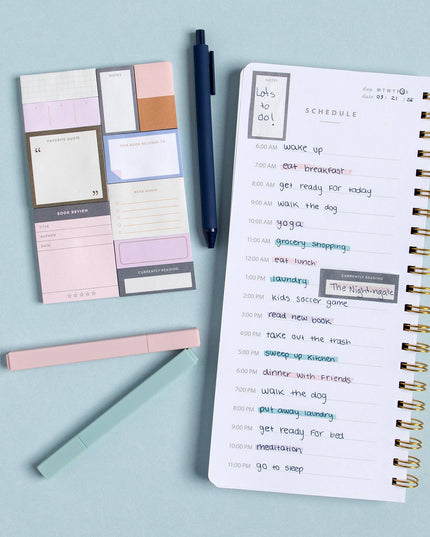 NOTES
FAVORITE QUOTE
“
”
THIS BOOK BELONGS TO
READ AGAIN
BOOK REVIEW
TITLE
AUTHOR
DATE
CURRENTLY READING
NOTES
Lots
to
do!
day M T W T F S S
date 03 / 21 /
SCHEDULE
6:00 AM wake up
7:00 AM eat breakfast
8:00 AM get ready for today
9:00 AM walk the dog
10:00 AM yoga
11:00 AM grocery shopping
12:00 AM eat lunch
1:00 PM laundry
CURRENTLY READING
The Nightingale
2:00 PM kids soccer game
3:00 PM read new book
4:00 PM take out the trash
5:00 PM sweep up kitchen
6:00 PM dinner with friends
7:00 PM walk the dog
8:00 PM put away laundry
9:00 PM get ready for bed
10:00 PM meditation
11:00 PM go to sleep